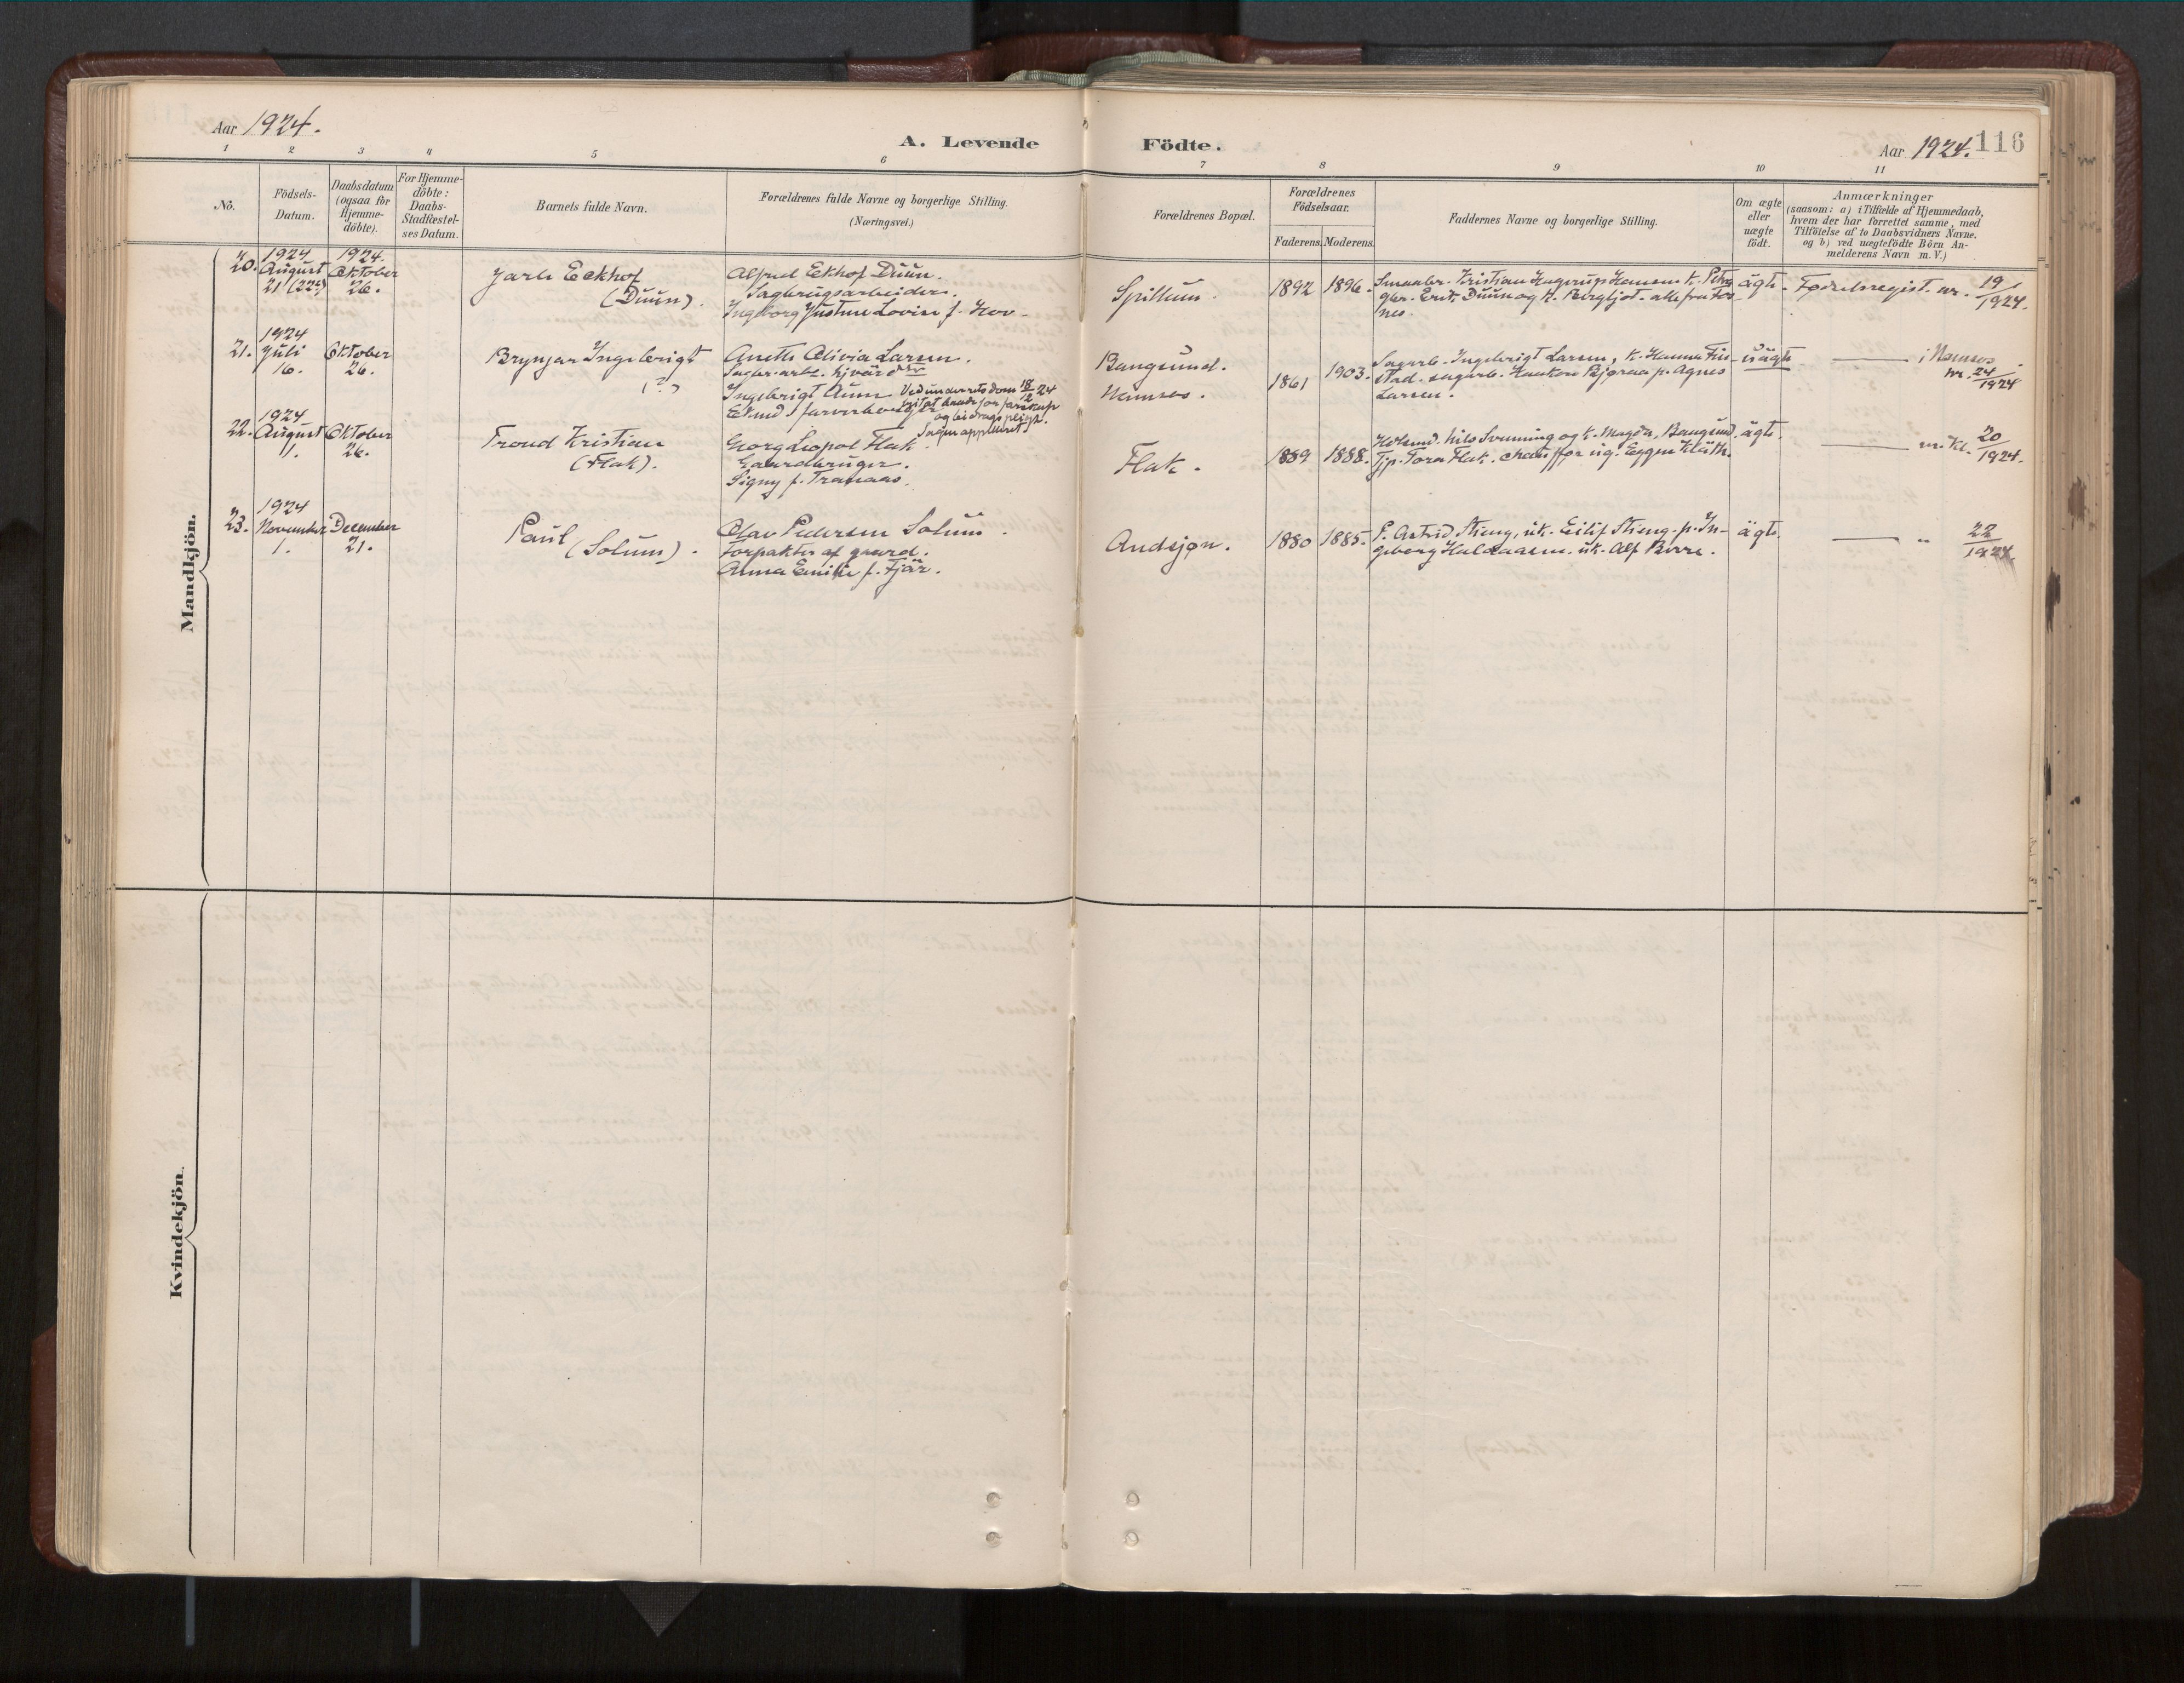 Aar 1924.
A. Levende Födte.
Aar 1924. 116
1 2 3 4 5 6 7 8 9 10 11
No.
Födsels-
Datum.
Daabsdatum
(ogsaa for
Hjemme-
döbte).
For Hjemme-
döbte:
Daabs-
Stadfæstel-
ses Datum.
Barnets fulde Navn.
Forældrenes fulde Navne og borgerlige Stilling.
(Næringsvei.)
Forældrenes Bopæl.
Forældrenes
Födselsaar.
Faderens. Moderens.
Faddernes Navne og borgerlige Stilling.
Om ægte
eller
uægte
födt.
Anmærkninger
(saasom: a) i Tilfælde af Hjemmedaab,
hvem der har forrettet samme, med
Tilföielse af to Daabsvidners Navne.
og b) ved uægtefödte Börn An-
melderens Navn m. V.)
Mandkjön.
20.
1924
August
21 (22?)
1924.
Oktober
26.
Jarle Eckhof
(Duun).
Alfred Eckhof Duun.
Sagbrugsarbeider.
Ingeborg Justine Lovise f. Hov.
Spillum.
1892 1896.
Kristian Hansen k. Petra
gbr. Erik Duun og k. Bergljot. alle fra Fos-
nes.
ägte.
Födselsregist. nr. 19/1924.
21.
1924
Juli
16.
Oktober
26.
Brynjar Ingebrigt
(?)
Anette Olivia Larsen.
Ingebrigt Aune
Ved underretsdom 18/12 24
og bidragspligt.
Sagen appelleret
Bangsund.
Namsos.
1861 1903.
Sagarb. Ingebrigt Larsen, k. Hanna Fin-
stad. sagarb. Haakon Bjøraa p. Agnes
Larsen.
uägte
i Namsos
nr. 24/1924
22.
1924
August
1.
Oktober
26.
Trond Kristian
(Flak).
Georg Liopol Flak.
Gaardbruger.
Signy f. Tranaas.
Flak.
1889 1888.
Nils Svenning og k. Magda, Bangsund.
Tjp. Tora Flak. chauffør Eggen Klüth.
ägte.
nr. Kl. 20/1924.
23.
1924
November
1.
December
21.
Paul (Solum).
Olav Pedersen Solum.
Forpakter af gaard.
Anna Emilie f. Fjär.
Andsjøn.
1880 1885.
P. Astrid Stieng, uk. Eilif Stieng. p. In-
geborg Haldaasen. uk. Alf Borre.
ägte.
" 22/1924
Kvindekjön.